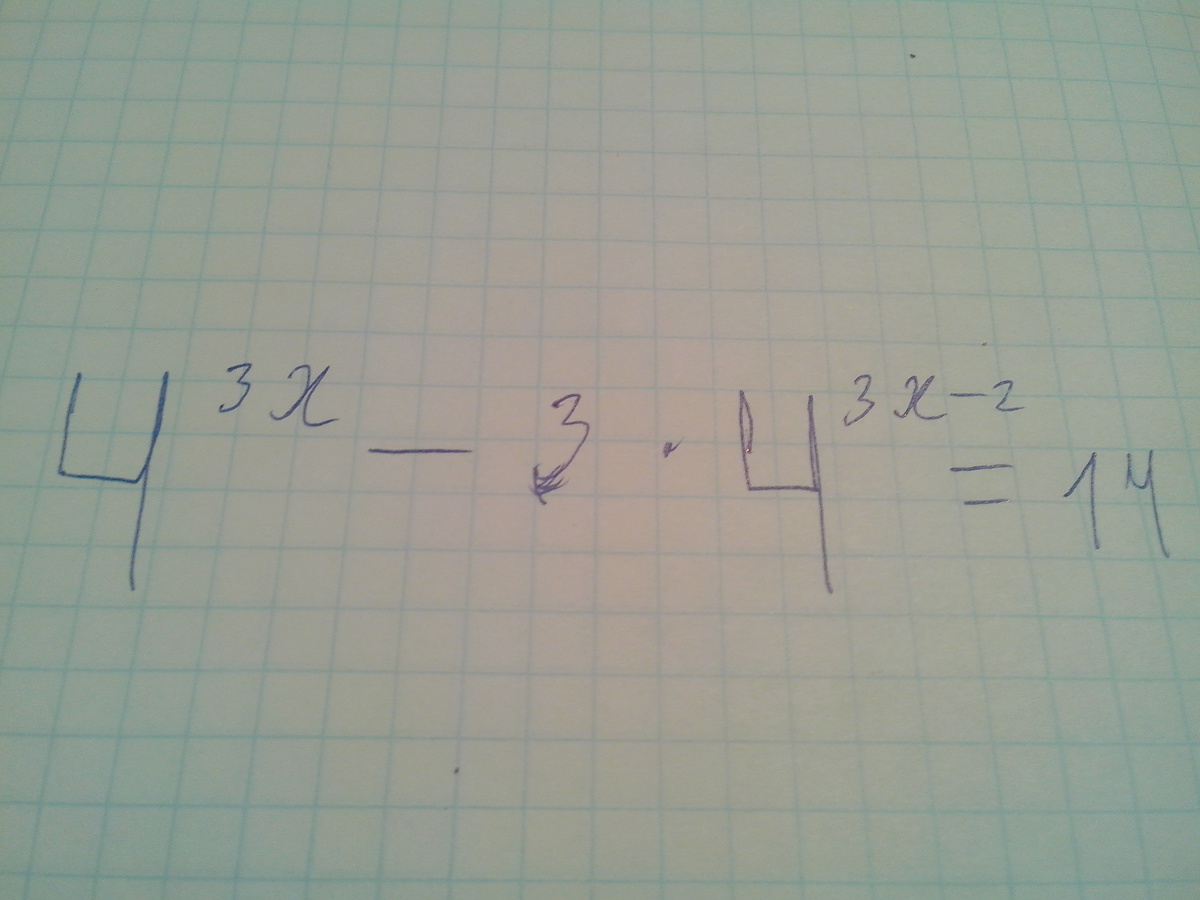 4^{3x} - 3 · 4^{3x-2} = 14